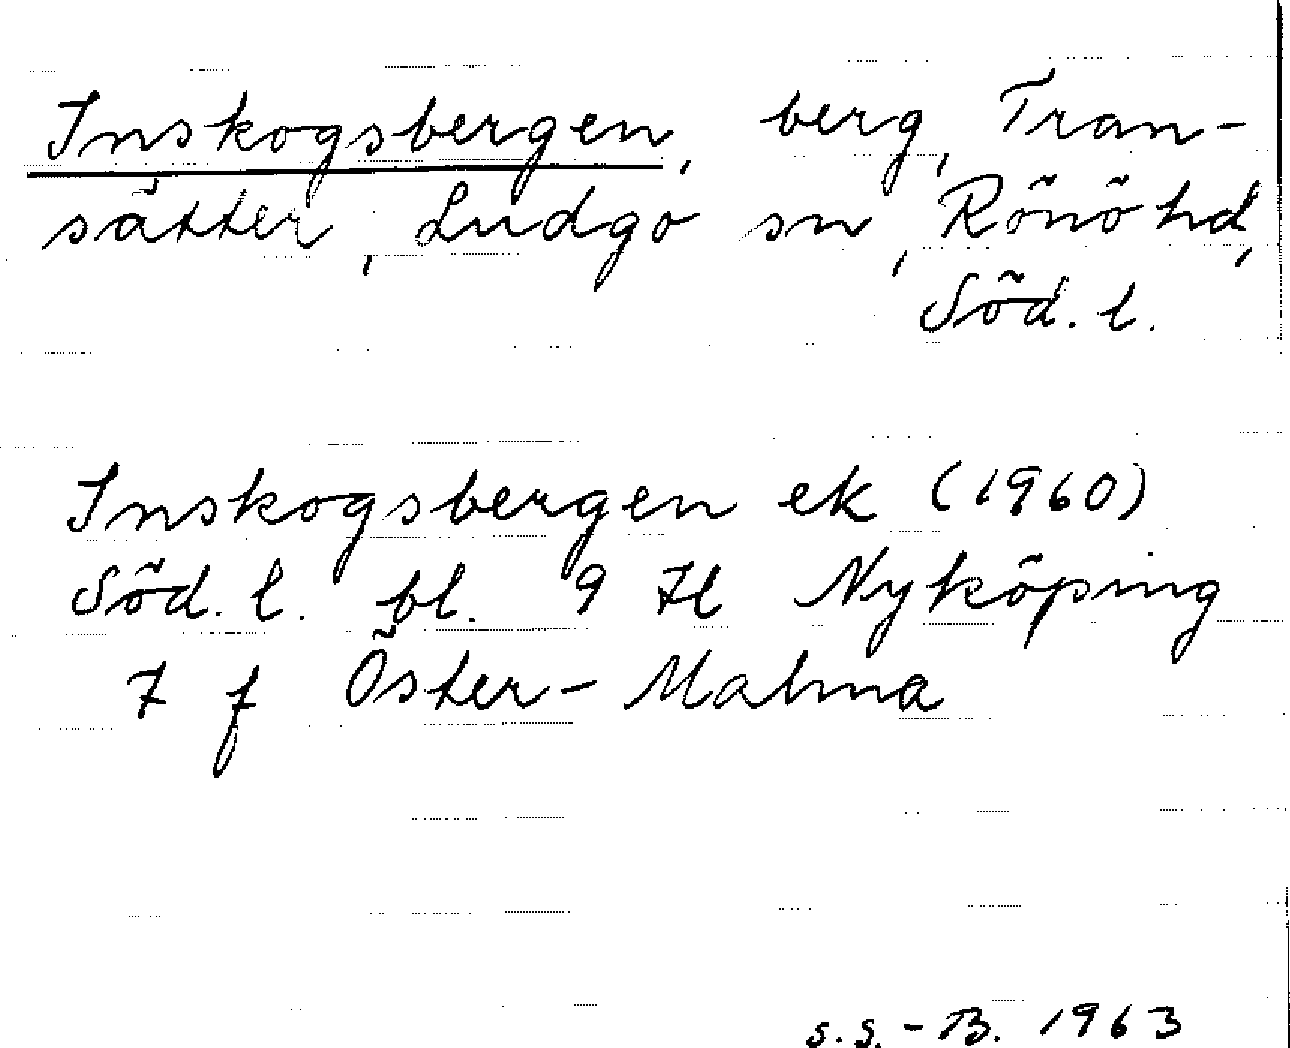 Inskogsbergen, berg, Tran-
sätter, Ludgo sn, Rönö hd,
Söd. l.
Inskogsbergen ek (1960)
Söd. l. bl. 9 H Nyköping
7 f Öster-Malma
S.S.-B. 1963